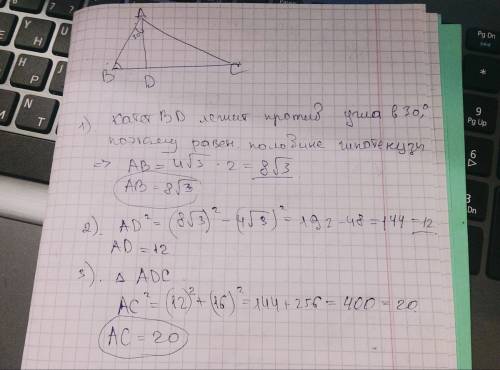 A
30°
B D C
1) Катет BD лежит против угла в 30°,
поэтому равен половине гипотенузы
=> AB = 4√3 · 2 = 8√3
AB = 8√3
2). AD² = (8√3)² - (4√3)² = 192 - 48 = 144 = 12
AD = 12
3). △ ADC.
AC² = (12)² + (16)² = 144 + 256 = 400 = 20.
AC = 20